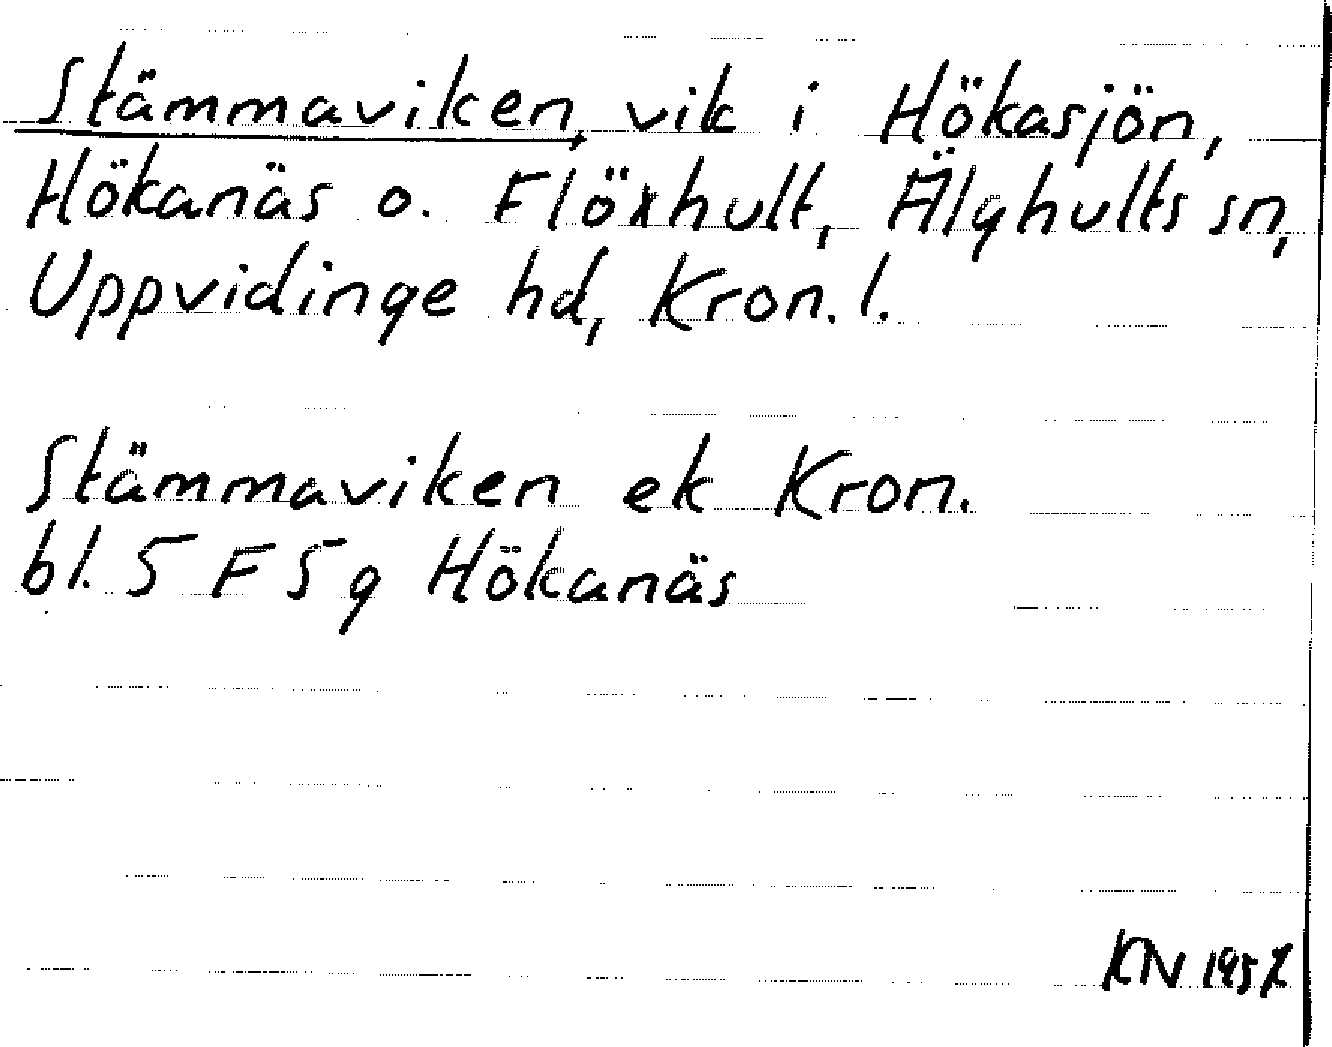 Stämmaviken, vik i Hökasjön,
Hökanäs o. Flöxhult, Älghults sn,
Uppvidinge hd, Kron. l.
Stämmaviken ek Kron.
bl. 5 F 5 g Hökanäs
KN 1957